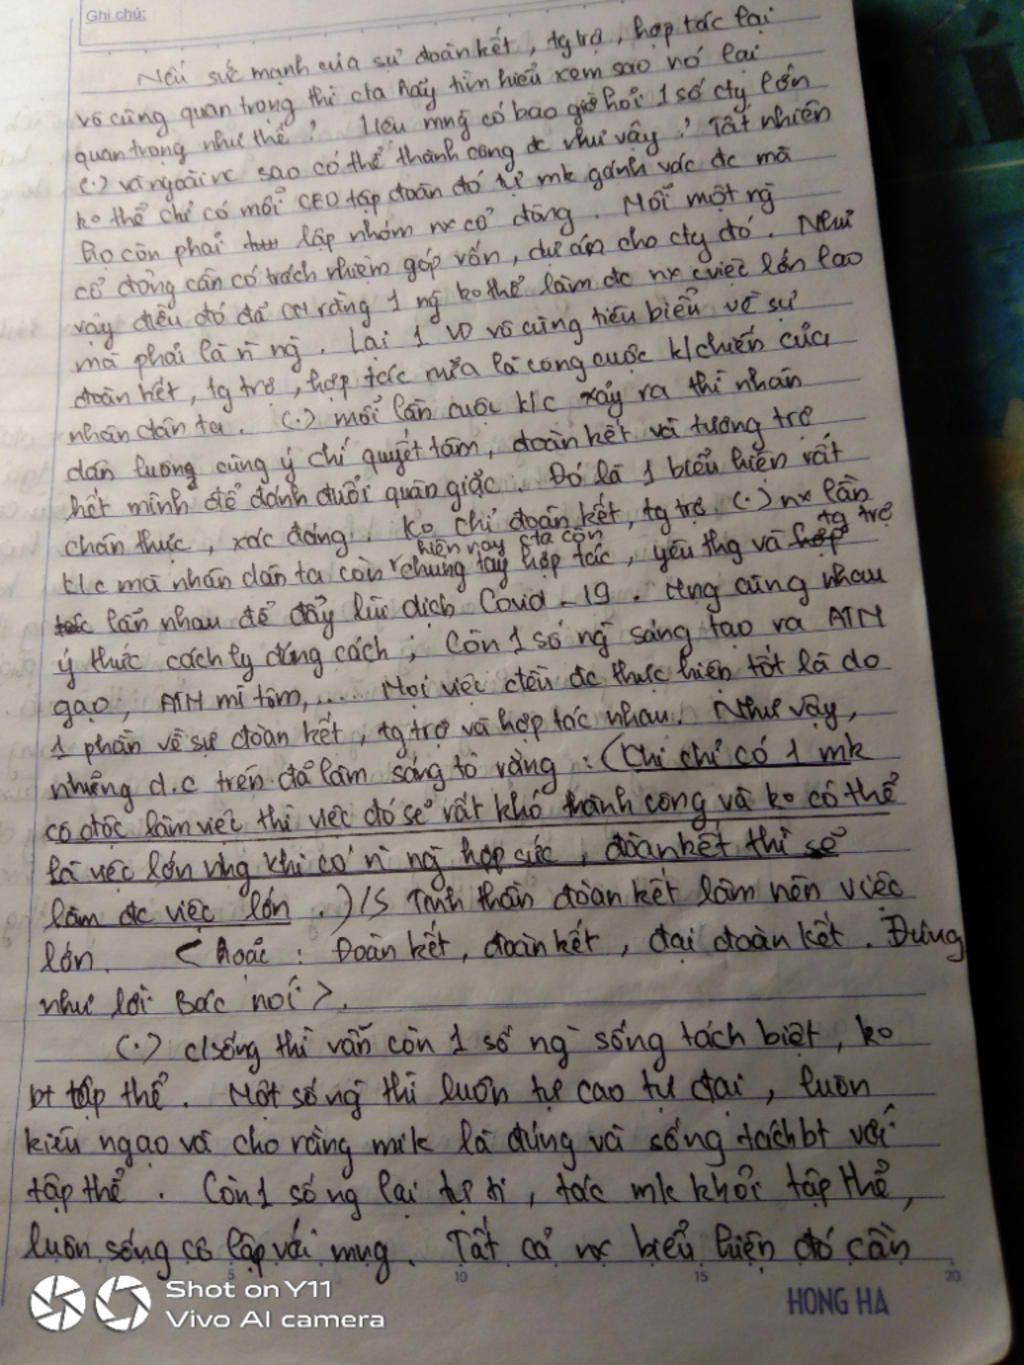 Ghi chú:
Nếu sức mạnh của sự đoàn kết, tg trợ, hợp tác lại
vô cùng quan trọng thì cta hãy tìm hiểu xem sao nó lại
quan trọng như thế? Liệu mng có bao giờ hỏi 1 số cty lớn
(.) và ngoài nc sao có thể thành công đc như vậy? Tất nhiên
ko thể chỉ có mỗi CEO tập đoàn đó tự mk gánh vác đc mà
họ còn phải lập nhóm nx cổ đông. Mỗi một ng
cổ đông cần có trách nhiệm góp vốn, dự án cho cty đó. Như
vậy điều đó đã CM rằng 1 ng ko thể làm đc nx cviệc lớn lao
mà phải là n ng. Lại 1 VD vô cùng tiêu biểu về sự
đoàn kết, tg trợ, hợp tác nữa là công cuộc k/chiến của
nhân dân ta. (.) mỗi lần cuộc k/c xảy ra thì nhân
dân luong cùng ý chí quyết tâm, đoàn kết và tương trợ
hết mình để đánh đuổi quân giặc. Đó là 1 biểu hiện rất
chân thực, xác đáng. Ko chỉ đoàn kết, tg trợ (.) nx lần
hiện nay cta còn tg trợ
k/c mà nhân dân ta còn chung tay hợp tác, yêu thg và hợp
tác lẫn nhau để đẩy lùi dịch Covid-19. Mng cùng nhau
ý thức cách ly đúng cách; Còn 1 số ng sáng tạo ra ATM
gạo, ATM mì tôm,.... Mọi việc đều đc thực hiện tốt là do
1 phần về sự đoàn kết, tg trợ và hợp tác nhau. Như vậy,
những d.c trên đã làm sáng tỏ rằng: (Khi chỉ có 1 mk
cô độc làm việc thì việc đó sẽ rất khó thành công và ko có thể
là việc lớn nhg khi có n ng hợp sức, đoàn kết thì sẽ
làm đc việc lớn.)/S Tinh thần đoàn kết làm nên việc
lớn. <hoặc: Đoàn kết, đoàn kết, đại đoàn kết. Đúng
như lời Bác nói>.
(.) c/sống thì vẫn còn 1 số ng sống tách biệt, ko
bt tập thể. Một số ng thì luôn tự cao tự đại, luôn
kiêu ngạo và cho rằng mk là đúng và sống tách bt với
tập thể. Còn 1 số ng lại tự ti, tác mk khỏi tập thể,
luôn sống cô lập với mng. Tất cả nx biểu hiện đó cần
5 10 15 20
HONG HA
Shot on Y11
Vivo AI camera